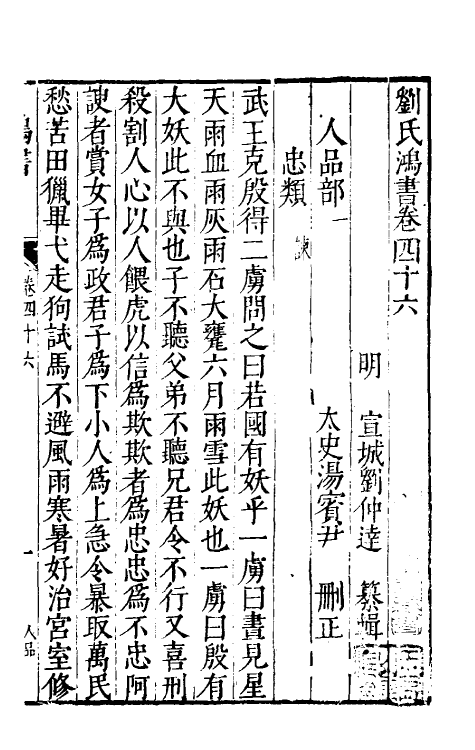 劉氏鴻書卷四十六
明　宣城劉仲達　纂輯
太史湯賓尹　刪正
人品部一
忠類　諫
武王克殷得二虜問之曰若國有妖乎一虜曰晝見星
天雨血雨灰雨石大甕六月雨雪此妖也一虜曰殷有
大妖此不與也子不聽父弟不聽兄君令不行又喜刑
殺割人心以人餵虎以信爲欺欺者爲忠忠爲不忠阿
諛者賞女子爲政君子爲下小人爲上急令暴取萬民
愁苦田獵畢弋走狗試馬不避風雨寒暑好治宮室修
卷四十六
一
人品